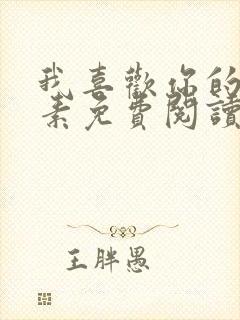 我喜歡你的
素免費閱讀
王胖愚